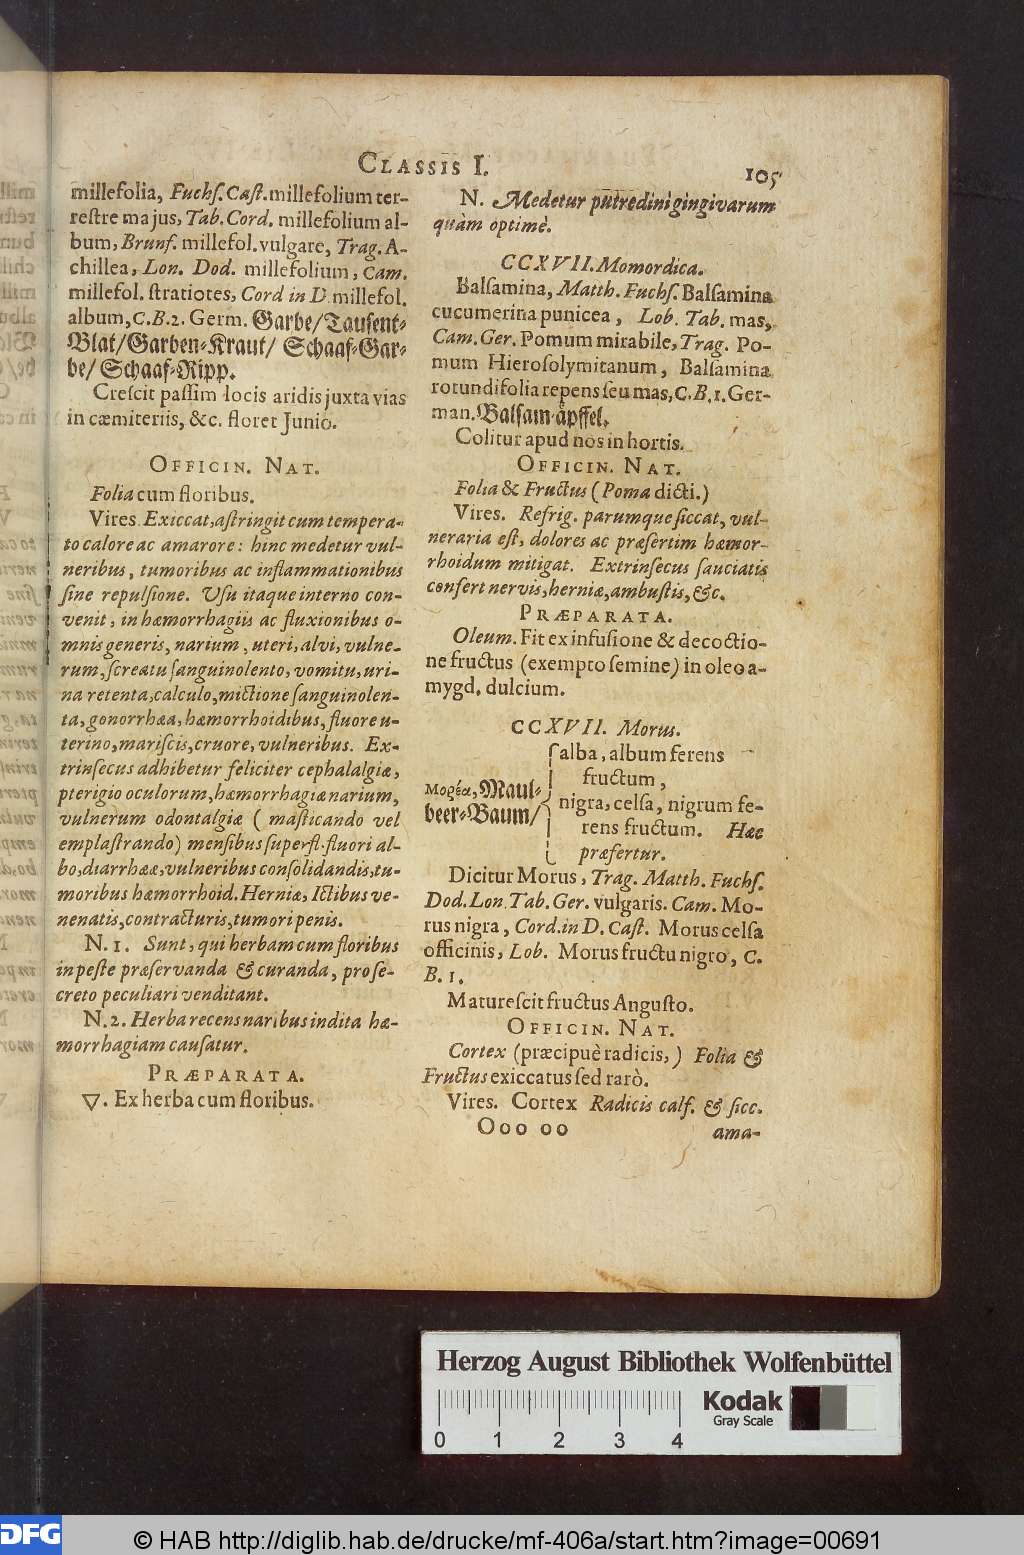 CLASSIS I.
105
millefolia, Fuchſ. Caſt. millefolium ter-
reſtre majus, Tab. Cord. millefolium al-
bum, Brunf. millefol. vulgare, Trag. A-
chillea, Lon. Dod. millefolium, Cam.
millefol. ſtratiotes, Cord in D. millefol.
album, C. B. 2. Germ. Garbe/Tauſent-
Blat/Garben-Kraut/ Schaaf-Gar-
be/ Schaaf-Ripp.
Creſcit paſſim locis aridis juxta vias
in cæmiteriis, &c. floret Junio.
OFFICIN. NAT.
Folia cum floribus.
Vires. Exiccat, aſtringit cum tempera-
to calore ac amarore: hinc medetur vul-
neribus, tumoribus ac inflammationibus
ſine repulſione. Uſu itaque interno con-
venit, in hæmorrhagiis ac fluxionibus o-
mnis generis, narium, uteri, alvi, vulne-
rum, ſcreatu ſanguinolento, vomitu, uri-
na retenta, calculo, mictione ſanguinolen-
ta, gonorrhæa, hæmorrhoidibus, fluore u-
terino, mariſcis, cruore, vulneribus. Ex-
trinſecus adhibetur feliciter cephalalgiæ,
pterigio oculorum, hæmorrhagiæ narium,
vulnerum odontalgiæ ( maſticando vel
emplaſtrando) menſibus ſuperfl. fluori al-
bo, diarrhææ, vulneribus conſolidandis, tu-
moribus hæmorrhoid. Herniæ, Ictibus ve-
nenatis, contracturis, tumori penis.
N. 1. Sunt, qui herbam cum floribus
in peſte præſervanda & curanda, pro ſe-
creto peculiari venditant.
N. 2. Herba recens naribus indita hæ-
morrhagiam cauſatur.
PRÆPARATA.
▽. Ex herba cum floribus.
N. Medetur putredini gingivarum
quàm optimè.
CCXVII. Momordica.
Balſamina, Matth. Fuchſ. Balſamina
cucumerina punicea, Lob. Tab. mas,
Cam. Ger. Pomum mirabile, Trag. Po-
mum Hieroſolymitanum, Balſamina
rotundifolia repens ſeu mas, C. B. 1. Ger-
man. Balſam-äpffel.
Colitur apud nos in hortis.
OFFICIN. NAT.
Folia & Fructus (Poma dicti.)
Vires. Refrig. parumque ſiccat, vul-
neraria eſt, dolores ac præſertim hæmor-
rhoidum mitigat. Extrinſecus ſauciatis
confert nervis, herniæ, ambuſtis, &c.
PRÆPARATA.
Oleum. Fit ex infuſione & decoctio-
ne fructus (exempto ſemine) in oleo a-
mygd. dulcium.
CCXVII. Morus.
alba, album ferens
fructum,
Μορέα, Maul-
beer-Baum/
nigra, celſa, nigrum fe-
rens fructum. Hæc
præfertur.
Dicitur Morus, Trag. Matth. Fuchſ.
Dod. Lon. Tab. Ger. vulgaris. Cam. Mo-
rus nigra, Cord. in D. Caſt. Morus celſa
officinis, Lob. Morus fructu nigro, C.
B. 1.
Matureſcit fructus Anguſto.
OFFICIN. NAT.
Cortex (præcipuè radicis,) Folia &
Fructus exiccatus ſed rarò.
Vires. Cortex Radicis calf. & ſicc.
Ooo oo
ama-
Herzog August Bibliothek Wolfenbüttel
Kodak
Gray Scale
0 1 2 3 4
DFG
© HAB http://diglib.hab.de/drucke/mf-406a/start.htm?image=00691